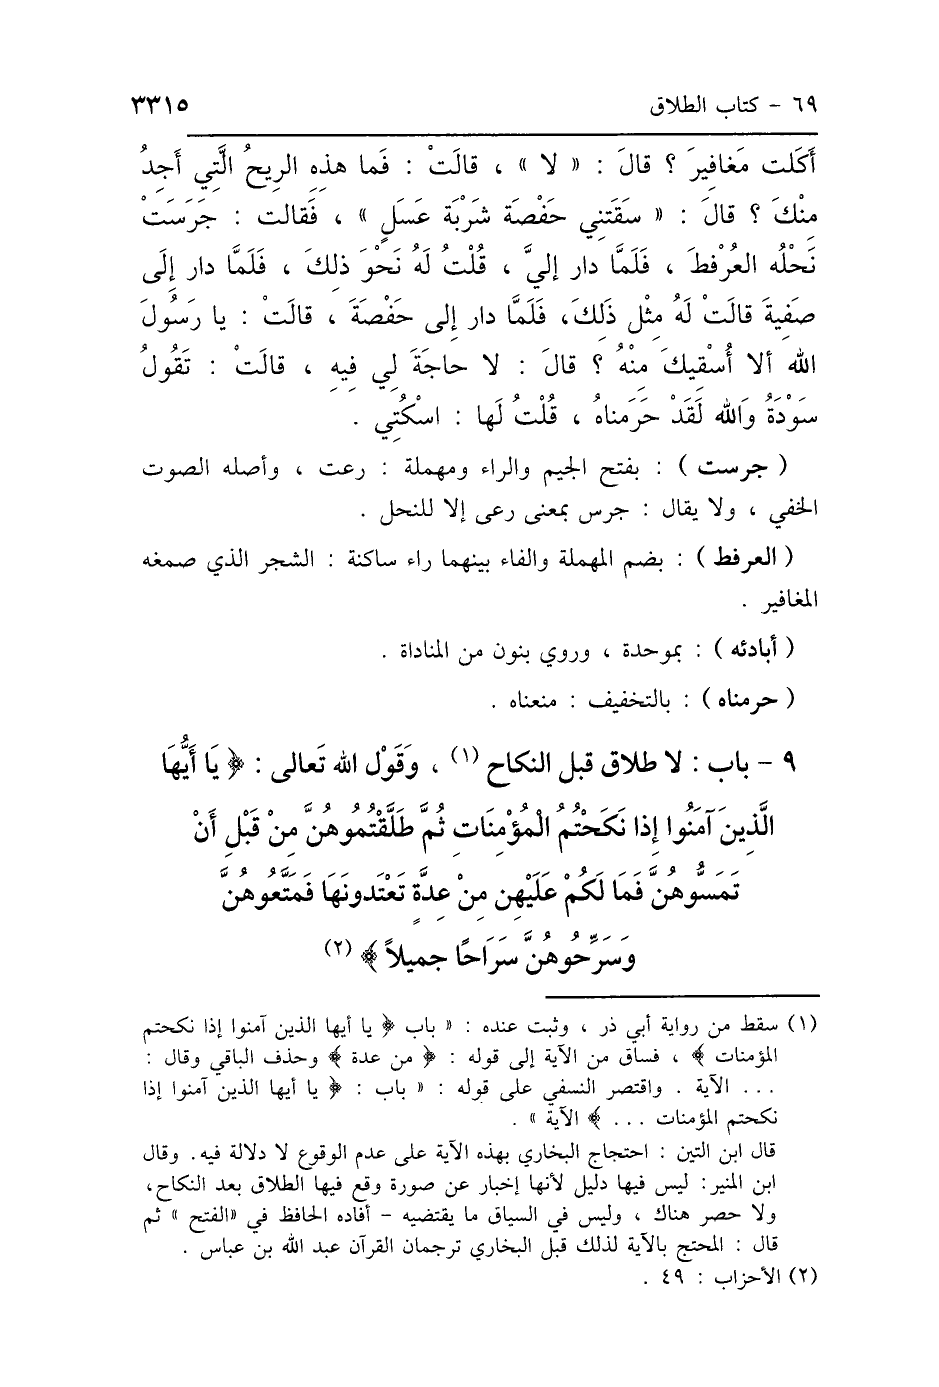 ٦٩ - كتاب الطلاق ٣٣١٥
أَكَلت مَغافِيرَ ؟ قالَ : « لا » ، قالَتْ : فَما هذِهِ الرِيحُ الَّتِي أَجِدُ
مِنْكَ ؟ قالَ : « سَقَتنِي حَفْصَة شَرْبَة عَسَلٍ » ، فَقالَت : جَرَسَتْ
نَحْلُه العُرْفطَ ، فَلَمَّا دار إليَّ ، قُلْتُ لَهُ نَحْوَ ذلِكَ ، فَلَمَّا دار إِلَى
صَفِيةَ قالَتْ لَهُ مِثْل ذَلكَ، فَلَمَّا دار إِلى حَفْصَةَ ، قالَتْ : يا رَسُولَ
الله ألا أُسْقِيكَ مِنْهُ ؟ قالَ : لا حاجَةَ لِي فِيهِ ، قالَتْ : تَقُولُ
سَوْدَةُ وَالله لَقَدْ حَرَمناهُ ، قُلْتُ لَها : اسْكُتِي .
( جرست ) : بفتح الجيم والراء ومهملة : رعت ، وأصله الصوت
الخفي ، ولا يقال : جرس بمعنى رعى إلا للنحل .
( العرفط ) : بضم المهملة والفاء بينهما راء ساكنة : الشجر الذي صمغه
المغافير .
( أبادئه ) : بموحدة ، وروي بنون من المناداة .
( حرمناه ) : بالتخفيف : منعناه .
٩ - باب : لا طلاق قبل النكاح (١) ، وَقَوْل الله تَعالى : ﴿ يَا أَيُّهَا
الَّذِينَ آمَنُوا إِذا نَكَحْتُمُ الْمُؤْمِنَاتِ ثُمَّ طَلَّقْتُمُوهُنَّ مِنْ قَبْلِ أَنْ
تَمَسُّوهُنَّ فَمَا لَكُمْ عَلَيْهِن مِنْ عِدةٍ تَعْتَدونَهَا فَمَتِّعوهُنَّ
وَسَرِّحُوهُنَّ سَرَاحًا جميلاً ﴾ (٢)
(١) سقط من رواية أبي ذر ، وثبت عنده : « باب ﴿ يا أيها الذين آمنوا إذا نكحتم
المؤمنات ﴾ ، فساق من الآية إلى قوله : ﴿ من عدة ﴾ وحذف الباقي وقال :
... الآية . واقتصر النسفي على قوله : « باب : ﴿ يا أيها الذين آمنوا إذا
نكحتم المؤمنات ... ﴾ الآية » .
قال ابن التين : احتجاج البخاري بهذه الآية على عدم الوقوع لا دلالة فيه. وقال
ابن المنير: ليس فيها دليل لأنها إخبار عن صورة وقع فيها الطلاق بعد النكاح،
ولا حصر هناك ، وليس في السياق ما يقتضيه - أفاده الحافظ في «الفتح » ثم
قال : المحتج بالآية لذلك قبل البخاري ترجمان القرآن عبد الله بن عباس .
(٢) الأحزاب : ٤٩ .